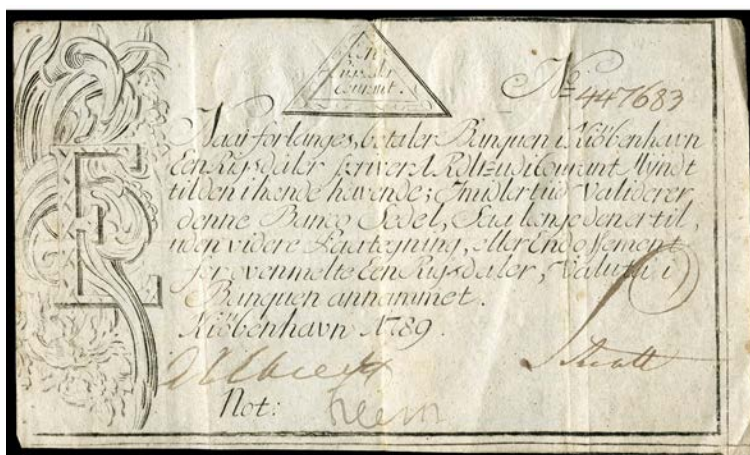 Een
Rigsdaler
Courant.
No 447683
Naar forlanges, betaler Banquen i Kiöbenhavn
Een Rigsdaler skriver 1 Rdlr udi Courant Myndt
til den ihænde havende; Imidlertiid validerer
denne Banco Sedel, Saa længe den er til,
uden videre Paategning, eller Endossement
for ovenmelte Een Rigsdaler, Valuta i
Banquen annammet.
Kiöbenhavn 1789.
Not: